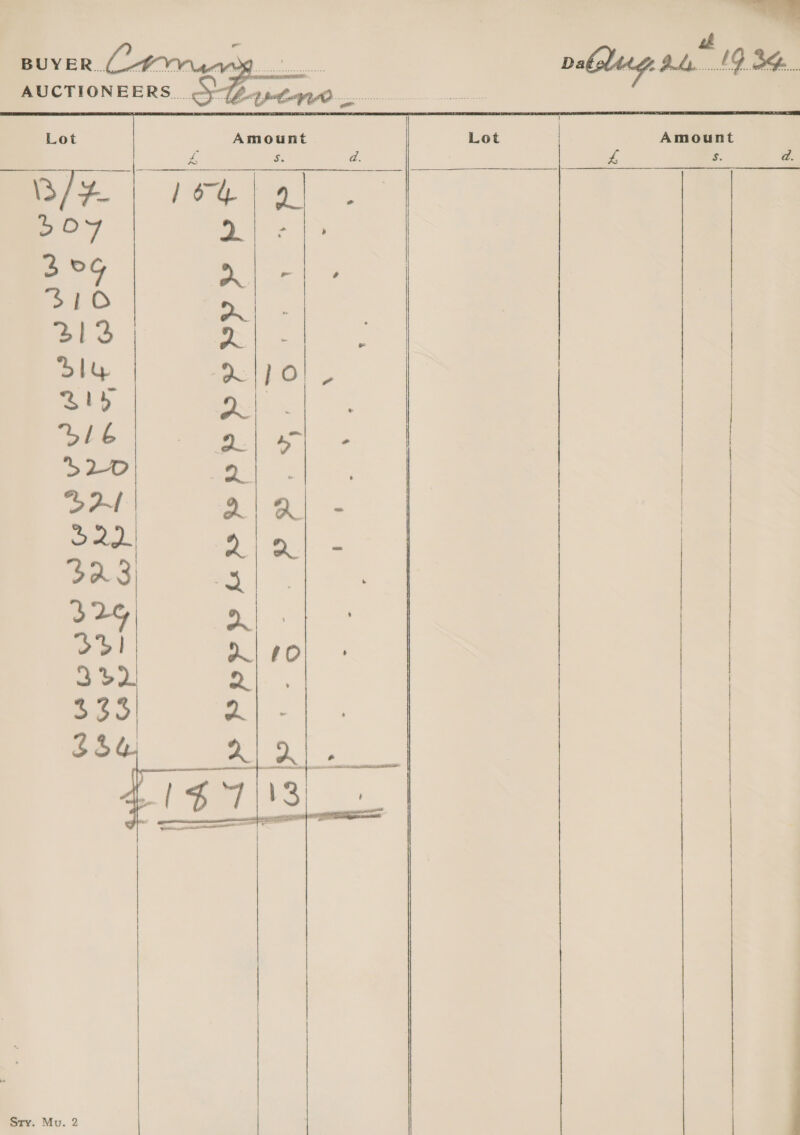 BUYER
Date Aug. 24th 1934
AUCTIONEERS Stevens
Lot Amount Lot Amount
£ s. d. £ s. d.
B/F 154 2 -
307 2 - -
309 2 - -
310 2 -
313 2 - -
314 2 10 -
315 2 - -
316 2 5 -
320 2 - -
321 2 2 -
322 2 2 -
323 2 - -
329 2 - -
331 2 10 -
332 2 -
333 2 - -
334 2 2 -
£187 13 -
Sty. Mu. 2